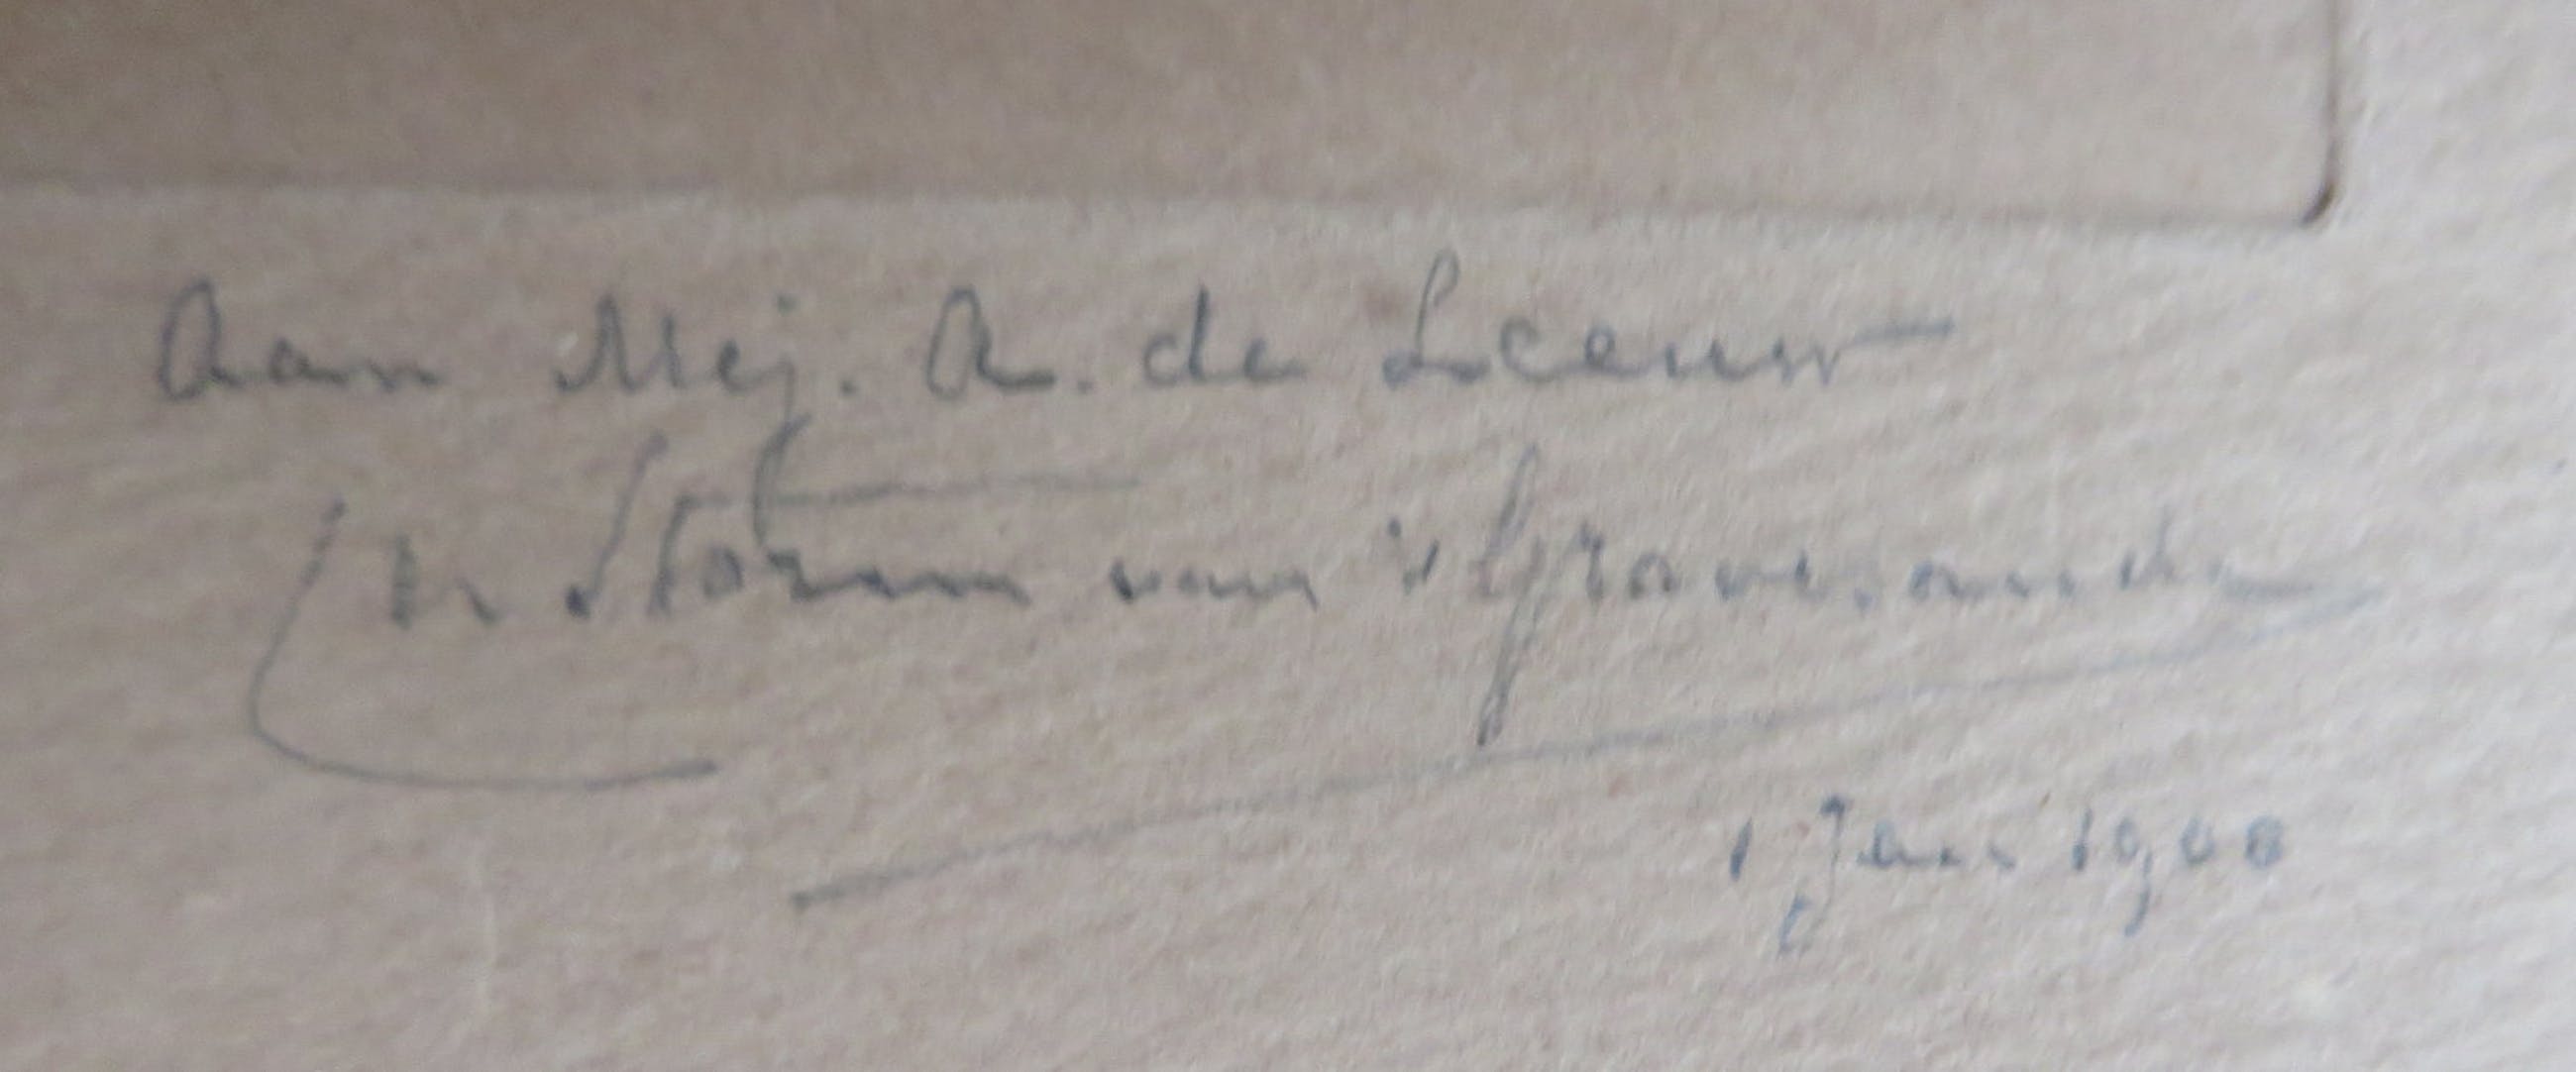 Aan Mej. A. de Leeuw
Storm van 's Gravesande
1 Jan 1908